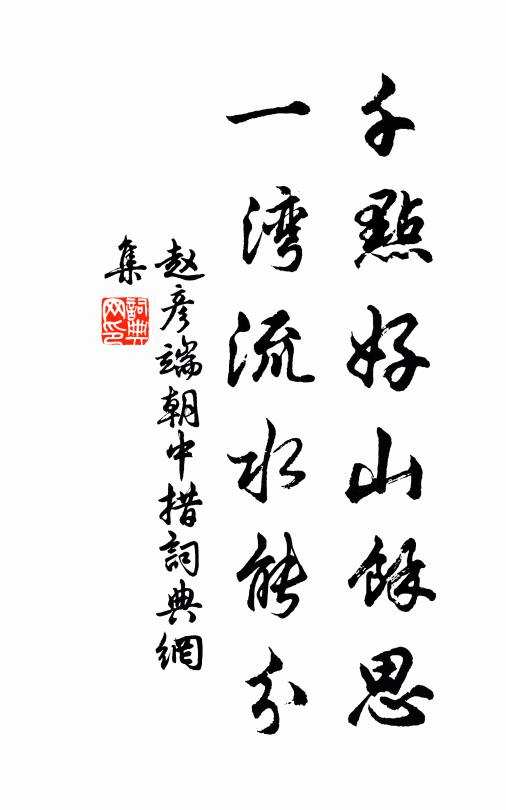 千點好山餘思
一湾流水能分
赵彦端朝中措詞典網
集
詞典網印